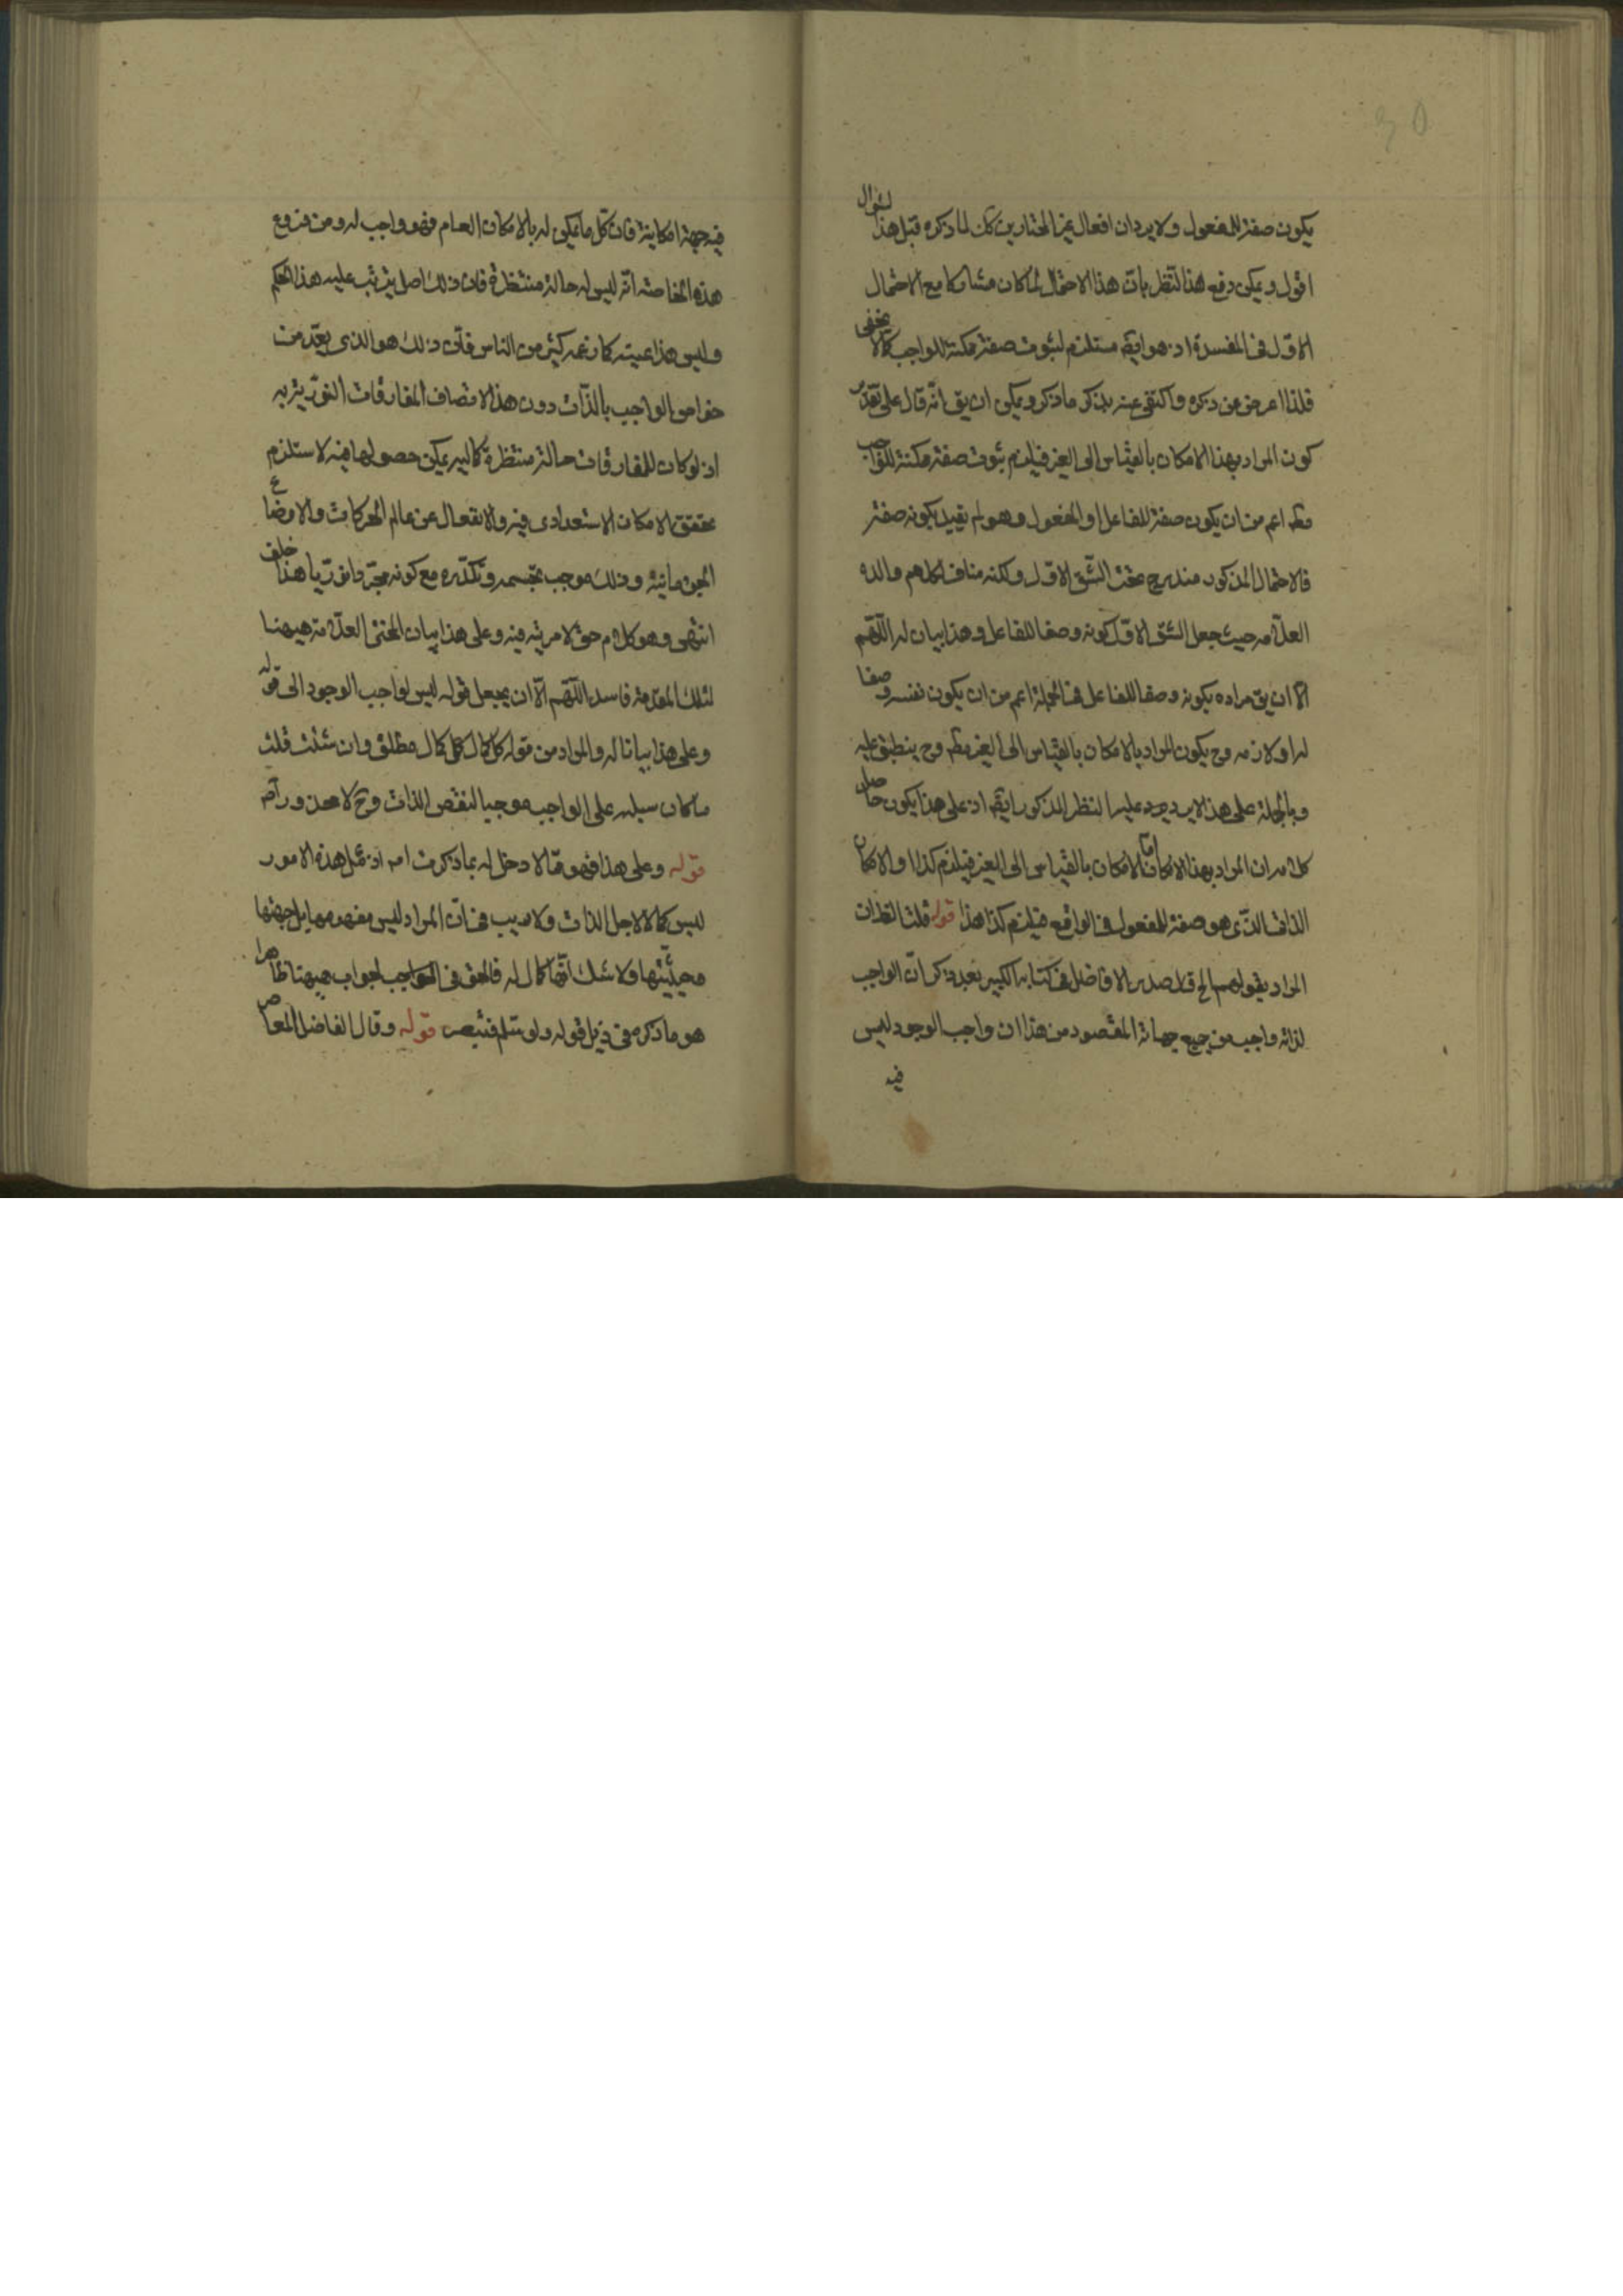 يكون صفة للمفعول ولا يرد ان افعال غير المختارين كك لما ذكره قبل هذا السؤال
اقول ويمكن دفع هذا النظر بان هذا الاحتمال لما كان مشاركا مع الاحتمال
الاول فى المفسدة اذ هو ايضا مستلزم لثبوت صفة ممكنة للواجب كما لا يخفى
فلذا اعرض عن ذكره واكتفى عنه بذكر ما ذكر ويمكن ان يق انه قال على تقدير
كون المراد بهذا الامكان بالقياس الى الغير فيلزم ثبوت صفة ممكنة للواجب
مط اعم من ان يكون صفة للفاعل او المفعول وهو لم يقيد بكونه صفة
فالاحتمال المذكور مندرج تحت الشق الاول ولكنه مناف لكلام والده
العلامه حيث جعل الشق الاول كونه وصفا للفاعل وهذا بيان له اللهم
الا ان يق مراده بكونه وصفا للفاعل فى الجملة اعم من ان يكون نفسه وصفا
له او لازمه وح يكون المراد بالامكان بالقياس الى الغير مط وح ينطبق عليه
وبالجملة على هذا لا يرد عليه النظر المذكور ايضا اذ على هذا يكون حاصل
كلامه ان المراد بهذا الامكان اما الامكان بالقياس الى الغير فيلزم كذا والامكان
الذاتى الذى هو صفة للمفعول فى الواقع فيلزم كذا هذا قوله قلت الظ ان
المراد بقولهم الخ قال صدر الافاضل فى كتابه الكبير بعد ذكر ان الواجب
لذاته واجب من جميع جهاته المقصود من هذا ان واجب الوجود ليس
فيه
فيه جهة امكانية فان كل ما يمكن له بالامكان العام فهو واجب له ومن فروع
هذه الخاصة انه ليس له حالة منتظرة فان ذلك اصل يترتب عليه هذا الحكم
وليس هذا عينه كما زعمه كثير من الناس فان ذلك هو الذى يعد من
خواص الواجب بالذات دون هذا لاتصاف المفارقات النورية به
اذ لو كان للمفارقات حالة منتظرة كمالية يمكن حصولها فيه لاستلزم
تحقق الامكان الاستعدادى فيه والانفعال عن عالم الحركات والاوضاع
الجرمانية وذلك موجب تجسمه وتكدره مع كونه مجردا نوريا هذا خلف
انتهى وهو كلام حق لا مرية فيه وعلى هذا بيان المحشى العلامة هيهنا
لتلك المقدمة فاسد اللهم الا ان يجعل قوله ليس لواجب الوجود الى قوله
وعلى هذا بيانا له والمراد من قوله كل كمال كل كمال مطلق وان شئت قلت
ما كان سلبه على الواجب موجبا لنقص الذات وح لا محذور آه
قوله وعلى هذا فهو مما لا دخل له بما ذكرت امه اذ مثل هذه الامور
ليس كمالا لاجل الذات ولا ريب فى ان المراد ليس مفهومها بل جهتها
وحيثيتها ولا شك انها كمال له فالحق فى الجواب هيهنا ظاهرا
هو ما ذكره فى ذيل قوله ولو سلم فتبصر قوله وقال الفاضل المعاصر